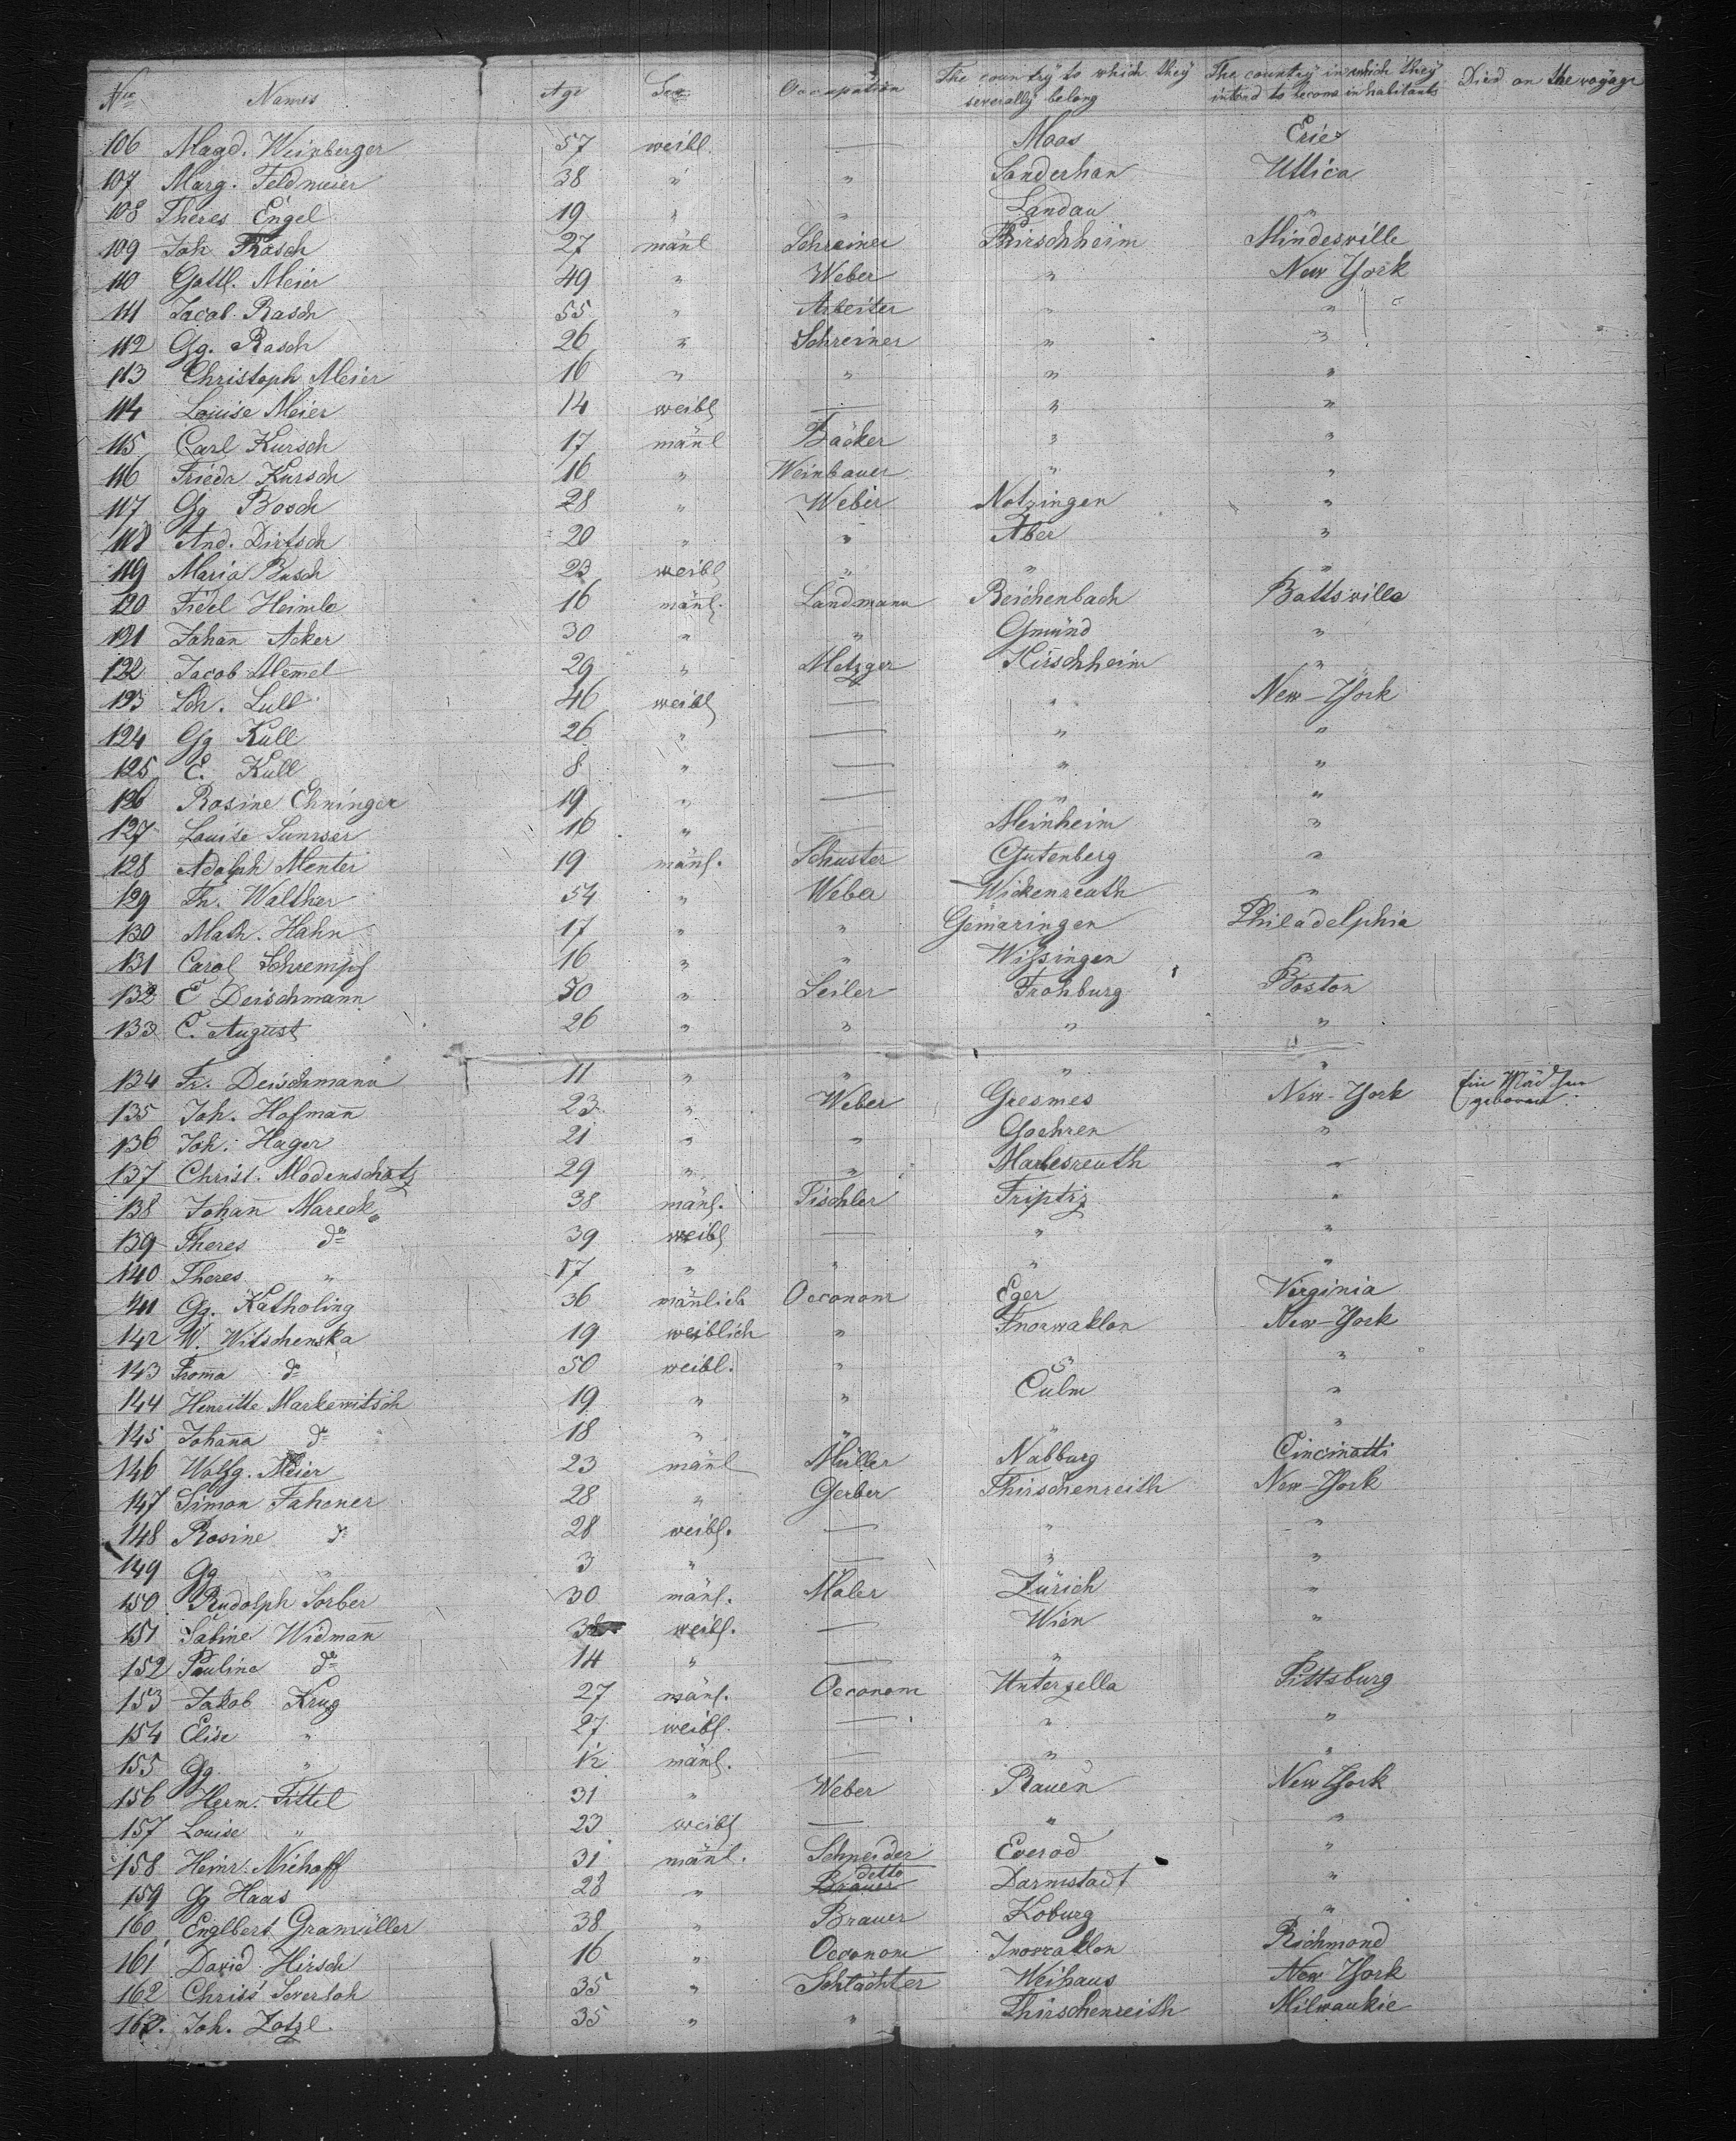 Nro Names Age Sex Occupation The country to which they severally belong The country in which they intend to become inhabitants Died on the voyage
106 Magd. Weinberger 57 weibl. — Moos Erie
107 Marg. Feldmeier 38 " " Sanderhan Uttica
108 Theres Engel 19 " " Landau "
109 Joh Rasch 27 mänl Schreiner Kirschheim Mindesville
110 Gottl. Meier 49 " Weber " New York
111 Jacob Rasch 55 " Arbeiter " "
112 Gg. Rasch 26 " Schreiner " "
113 Christoph Meier 16 " " " "
114 Louise Meier 14 weibl — " "
115 Carl Kursch 17 mänl Bäcker " "
116 Friedr. Kursch 16 " Weinbauer " "
117 Gg Bosch 28 " Weber Notzingen "
118 And. Dirtsch 20 " " Aber "
119 Maria Busch 23 weibl " " "
120 Fidel Heimle 16 mänl. Landmann Reichenbach Bottsville
121 Johan̄ Acker 30 " " Gmünd "
122 Jacob Mem̄el 29 " Metzger Kirschheim "
123 Sch. Lull 46 weibl — " New-York
124 Gg Kull 26 " — " "
125 E. Kull 8 " — " "
126 Rosine Ehninger 19 " — " "
127 Louise 16 " — Meinheim "
128 Adolph Menter 19 mänl. Schuster Gutenberg "
129 Fr. Walther 54 " Weber Wickenreuth "
130 Math. Hahn 17 " " Gömaringen Philadelphia
131 Carol Schrempf 16 " " Wißingen "
132 E Deischmann 50 " Seiler Frohburg Boston
133 C. August 26 " " " "
134 Fr. Deischmann 11 " " " "
135 Joh. Hofman̄ 23 " Weber Gresmes New-York Ein Mädchen geboren.
136 Joh. Hager 21 " " Goehren "
137 Christ. Modenschatz 29 " " Marlesreuth "
138 Johan̄ Mareck 38 mänl. Tischler Triptiz "
139 Theres do 39 weibl — " "
140 Theres " 17 " " " "
141 Gg. Katholing 36 mänlich Oeconom Eger Virginia
142 W. Witschenska 19 weiblich " Inowraklon New-York
143 Froma do 50 weibl. " " "
144 Henritte Markewitsch 19 " " Culm "
145 Johan̄a do 18 " " " "
146 Wolfg. Meier 23 mänl Müller Nabburg Cincinatti
147 Simon Fahrner 28 " Gerber Thirschenreith New-York
148 Rosine do 28 weibl. — " "
149 Gg " 3 " — " "
150 Rudolph Sorber 30 mänl. Maler Zürich "
151 Sabine Widman̄ 38 weibl. — Wien "
152 Pauline do 14 " — " "
153 Jakob Krug 27 mänl. Oeconom Unterzella Pittsburg
154 Elise " 27 weibl. — " "
155 Gg " 1½ mänl. — " "
156 Herm. Tittel 31 " Weber Plauen New York
157 Louise " 23 weibl — " "
158 Heinr. Niehoff 31 mänl. Schneider Everod "
159 Gg Haas 28 " Brauer detto Darmstadt "
160 Englbert Gramüller 38 " Brauer Koburg "
161 David Hirsch 16 " Oeconom Inowraklon Richmond
162 Christ Severloh 35 " Schlächter Weihaus New York
163. Joh. Zotzl. 35 " " Thirschenreith Milwaukie